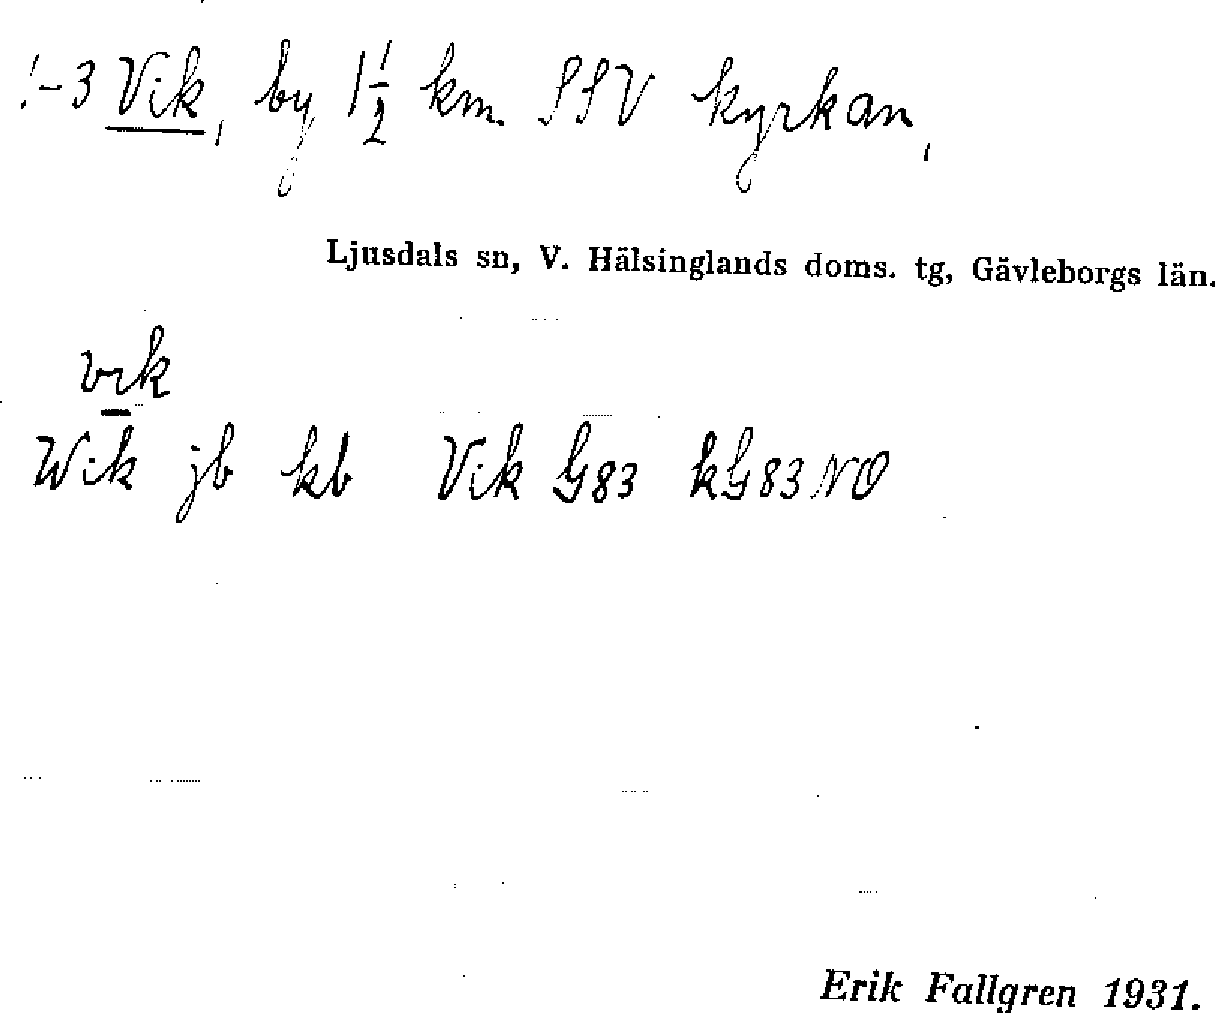 1-3 Vik, by 1 1/2 km SSV kyrkan,
Ljusdals sn, V. Hälsinglands doms. tg, Gävleborgs län.
vik
Wik jb kb Vik G83 kG83NO
Erik Fallgren 1931.